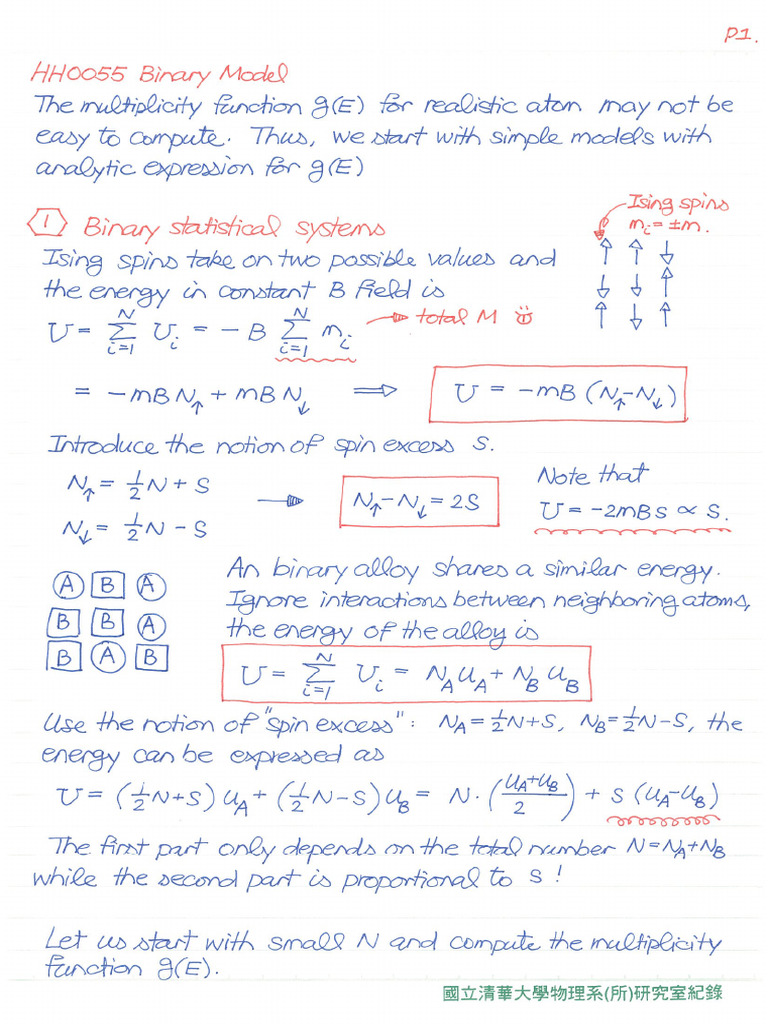 P1.
HH0055 Binary Model
The multiplicity function g(E) for realistic atom may not be
easy to compute. Thus, we start with simple models with
analytic expression for g(E)
① Binary statistical systems
Ising spins
mᵢ = ±m.
Ising spins take on two possible values and
the energy in constant B field is
U = Σᵢ₌₁ᴺ Uᵢ = -B Σᵢ₌₁ᴺ mᵢ → total M
↑ ↑ ↓
↓ ↓ ↑
↑ ↓ ↑
= -mBN↑ + mBN↓ ⟹ U = -mB (N↑-N↓)
Introduce the notion of spin excess s.
N↑ = ½N + s
N↓ = ½N - s
→ N↑-N↓ = 2s
Note that
U = -2mBs ∝ s.
A B A
B B A
B A B
An binary alloy shares a similar energy.
Ignore interactions between neighboring atoms,
the energy of the alloy is
U = Σᵢ₌₁ᴺ Uᵢ = N_A U_A + N_B U_B
Use the notion of "spin excess": N_A = ½N+s, N_B = ½N-s, the
energy can be expressed as
U = (½N+s) U_A + (½N-s) U_B = N·((U_A+U_B)/2) + s (U_A-U_B)
The first part only depends on the total number N=N_A+N_B
while the second part is proportional to s!
Let us start with small N and compute the multiplicity
function g(E).
國立清華大學物理系(所)研究室紀錄